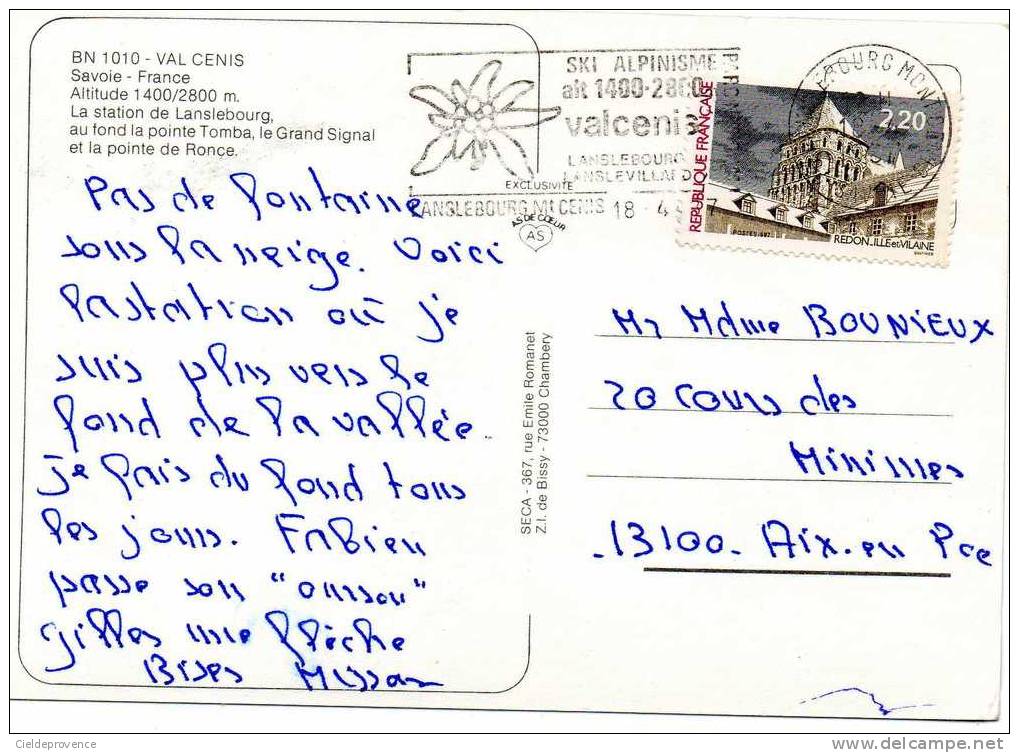 BN 1010 - VAL CENIS
Savoie - France
Altitude 1400/2800 m.
La station de Lanslebourg,
au fond la pointe Tomba, le Grand Signal
et la pointe de Ronce.
Pas de fontaine
sous la neige. Voici
la station où je
suis plus vers le
fond de la vallée.
je fais du fond tous
les jours. Fabien
passe son "ourson"
gilles une flèche
Bises
SKI ALPINISME
alt 1400-2800
valcenis
LANSLEBOURG
LANSLEVILLARD
LANSLEBOURG Mt CENIS 18 - 4
EXCLUSIVITÉ
AS DE CŒUR
AS
SECA - 367, rue Emile Romanet
Z.I. de Bissy - 73000 Chambery
BOURG MONT
REPUBLIQUE FRANÇAISE
2,20
REDON_ILLE et VILAINE
Mr Mdme BOUNIEUX
20 Cours des
Minimes
-13100- Aix-en Pce
Cieldeprovence
delcampe.net